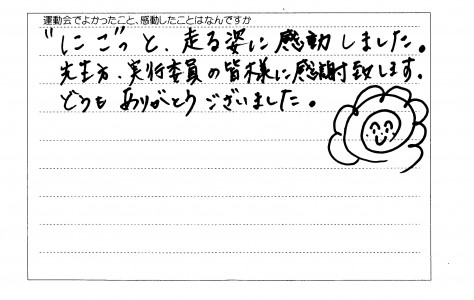 運動会でよかったこと、感動したことはなんですか
"にこ"っと、走る姿に感動しました。
先生方、実行委員の皆様に感謝致します。
どうもありがとうございました。